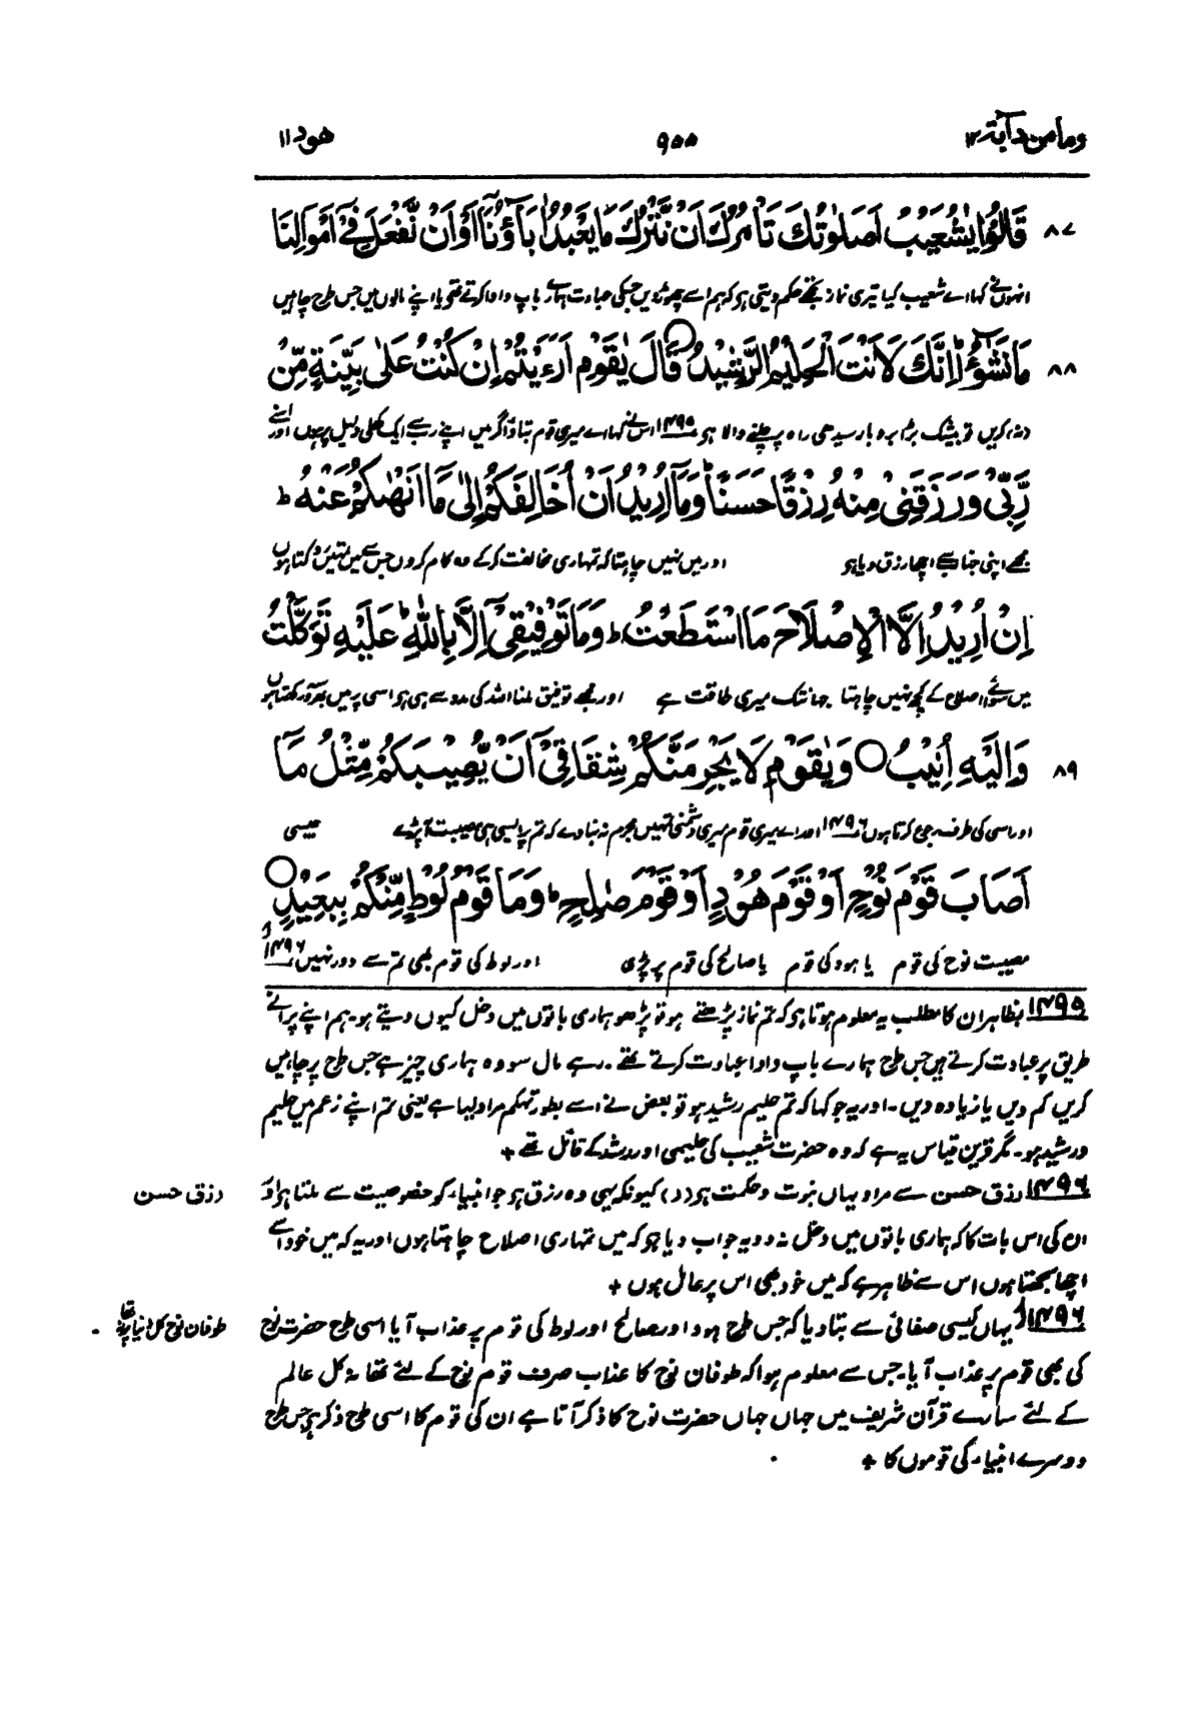 ومامن دآبة ۱۲ ۹۵۵ هود ۱۱
۸۷ قَالُوْا يٰشُعَيْبُ اَصَلٰوتُكَ تَاْمُرُكَ اَنْ نَّتْرُكَ مَا يَعْبُدُ اٰبَآؤُنَآ اَوْ اَنْ نَّفْعَلَ فِيْٓ اَمْوَالِنَا
انہوں نے کہا اے شعیب کیا تیری نماز تجھے حکم دیتی ہو کہ ہم اسے چھوڑ دیں جسکی عبادت ہمارے باپ دادا کرتے تھے یا اپنے مالوں میں جس طرح چاہیں
۸۸ مَا نَشٰٓؤُا ؕ اِنَّكَ لَاَنْتَ الْحَلِيْمُ الرَّشِيْدُ ○ قَالَ يٰقَوْمِ اَرَءَيْتُمْ اِنْ كُنْتُ عَلٰى بَيِّنَةٍ مِّنْ
نہ کریں تو بیشک بڑا بردبار سیدھی راہ پر چلنے والا ہو ۱۴۹۵ اس نے کہا اے میری قوم بتاؤ اگر میں اپنے رب سے ایک کھلی دلیل پر ہوں اور اپنے
رَّبِّيْ وَرَزَقَنِيْ مِنْهُ رِزْقًا حَسَنًا ؕ وَمَآ اُرِيْدُ اَنْ اُخَالِفَكُمْ اِلٰى مَآ اَنْهٰىكُمْ عَنْهُ ؕ
مجھے اپنی جناب سے اچھا رزق دیا ہو اور میں نہیں چاہتا کہ تمہاری مخالفت کرکے وہ کام کروں جس سے میں تمہیں روکتا ہوں
اِنْ اُرِيْدُ اِلَّا الْاِصْلَاحَ مَا اسْتَطَعْتُ ؕ وَمَا تَوْفِيْقِيْٓ اِلَّا بِاللّٰهِ ؕ عَلَيْهِ تَوَكَّلْتُ
میں سوائے اصلاح کے کچھ نہیں چاہتا جہانتک میری طاقت ہے اور مجھے توفیق ملنا اللہ کی مدد سے ہی ہو اسی پر میں بھروسہ رکھتا ہوں
۸۹ وَاِلَيْهِ اُنِيْبُ ○ وَيٰقَوْمِ لَا يَجْرِمَنَّكُمْ شِقَاقِيْٓ اَنْ يُّصِيْبَكُمْ مِّثْلُ مَآ
اور اسی کی طرف رجوع کرتا ہوں ۱۴۹۶ اور اے میری قوم میری دشمنی تمہیں مجرم نہ بنا دے کہ تم پر ایسی ہی مصیبت آ پڑے جیسی
اَصَابَ قَوْمَ نُوْحٍ اَوْ قَوْمَ هُوْدٍ اَوْ قَوْمَ صٰلِحٍ ؕ وَمَا قَوْمُ لُوْطٍ مِّنْكُمْ بِبَعِيْدٍ ○
مصیبت نوح کی قوم یا ہود کی قوم یا صالح کی قوم پر پڑی اور لوط کی قوم بھی تم سے دور نہیں ۱۴۹۶ا
۱۴۹۵ بظاہر ان کا مطلب یہ معلوم ہوتا ہو کہ تم نماز پڑھتے ہو تو پڑھو ہماری باتوں میں دخل کیوں دیتے ہو۔ ہم اپنے پرانے
طریق پر عبادت کرتے ہیں جس طرح ہمارے باپ دادا عبادت کرتے تھے۔ رہے مال سو وہ ہماری چیز ہے جس طرح پر چاہیں
کریں کم دیں یا زیادہ دیں۔ اور یہ جو کہا کہ تم حلیم رشید ہو تو بعض نے اسے بطور تہکم مراد لیا ہے یعنی تم اپنے زعم میں حلیم
و رشید ہو۔ مگر قرین قیاس یہ ہے کہ وہ حضرت شعیب کی حلیمی اور رشد کے قائل تھے +
۱۴۹۶ رزق حسن سے مراد یہاں نبوت و حکمت ہو (د) کیونکہ یہی وہ رزق ہو جو انبیاء کو خصوصیت سے ملتا ہو اور
رزق حسن
ان کی اس بات کا کہ ہماری باتوں میں دخل نہ دو یہ جواب دیا ہو کہ میں تمہاری اصلاح چاہتا ہوں اور یہ کہ میں خود اسے
اچھا سمجھتا ہوں اس سے ظاہر ہے کہ میں خود بھی اس پر عامل ہوں +
۱۴۹۶ا یہاں کیسی صفائی سے بتا دیا کہ جس طرح ہود اور صالح اور لوط کی قوم پر عذاب آیا اسی طرح حضرت نوح
طوفان نوح کل دنیا پر نہ تھا
کی بھی قوم پر عذاب آیا۔ جس سے معلوم ہوا کہ طوفان نوح کا عذاب صرف قوم نوح کے لئے تھا نہ کل عالم
کے لئے سارے قرآن شریف میں جہاں جہاں حضرت نوح کا ذکر آتا ہے ان کی قوم کا اسی طرح ذکر ہے جس طرح
دوسرے انبیاء کی قوموں کا +